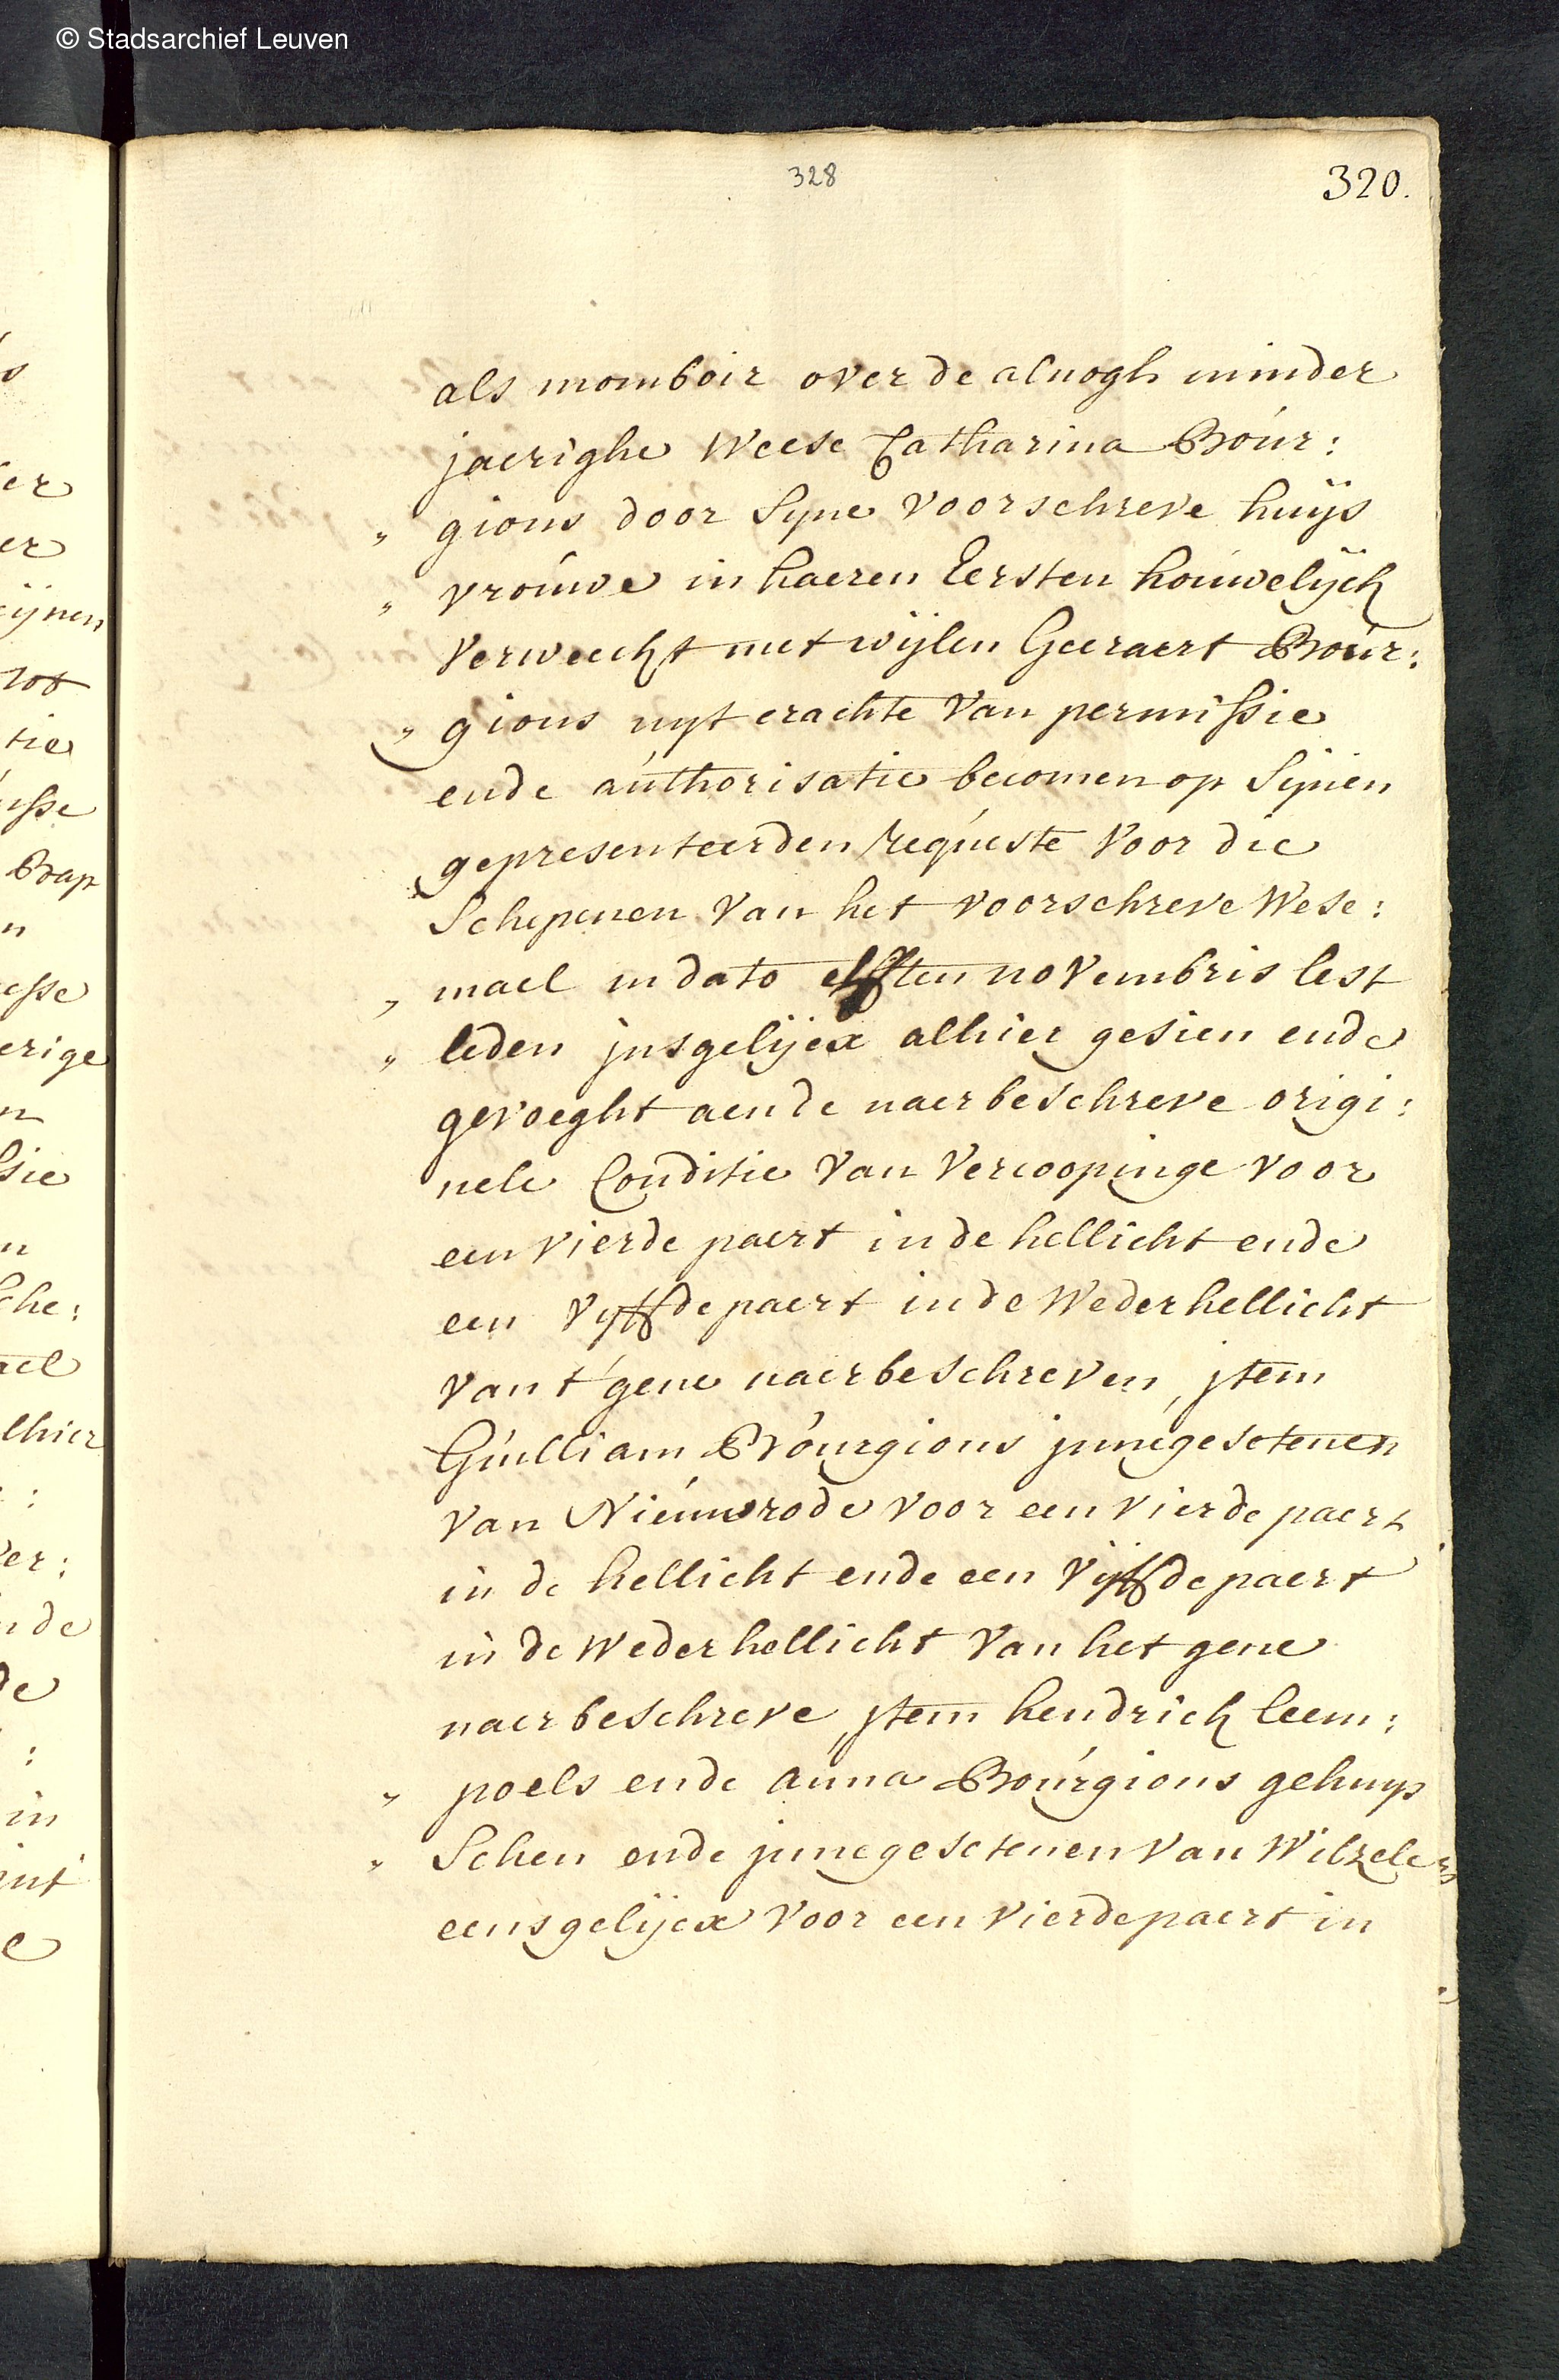 © Stadsarchief Leuven
328
320.
als momboir over de alnogh minder
jaerighe Weese Catharina Bour:
„ gions door Syne voorschreve huijs
„ vrouwe in haeren Eersten houwelijck
verweeckt met wijlen Geeraert Bour:
„ gions uyt crachte van permissie
ende authorisatie becomen op Synen
gepresenteerden requeste voor die
Schepenen van het voorschreve Wese:
„ mael in dato elfsten novembris lest
„ leden jnsgelijcx alhier gesien ende
gevoeght aen de naerbeschreve origi:
nele Conditie van vercoopinge voor
een vierde paert in de hellicht ende
een vyffde paert in de Wederhellicht
van t'gene naerbeschreven, jtem
Guilliam Bourgions jnnegesetenen
van Nieuwrode voor een vierde paert
in de hellicht ende een vijffde paert
in de Wederhellicht van het gene
naerbeschreve, jtem hendrick leem:
„ poels ende anna Bourgions gehuys
„ Schen ende jnnegesetenen van Wilzele
eensgelijcx voor een vierde paert in